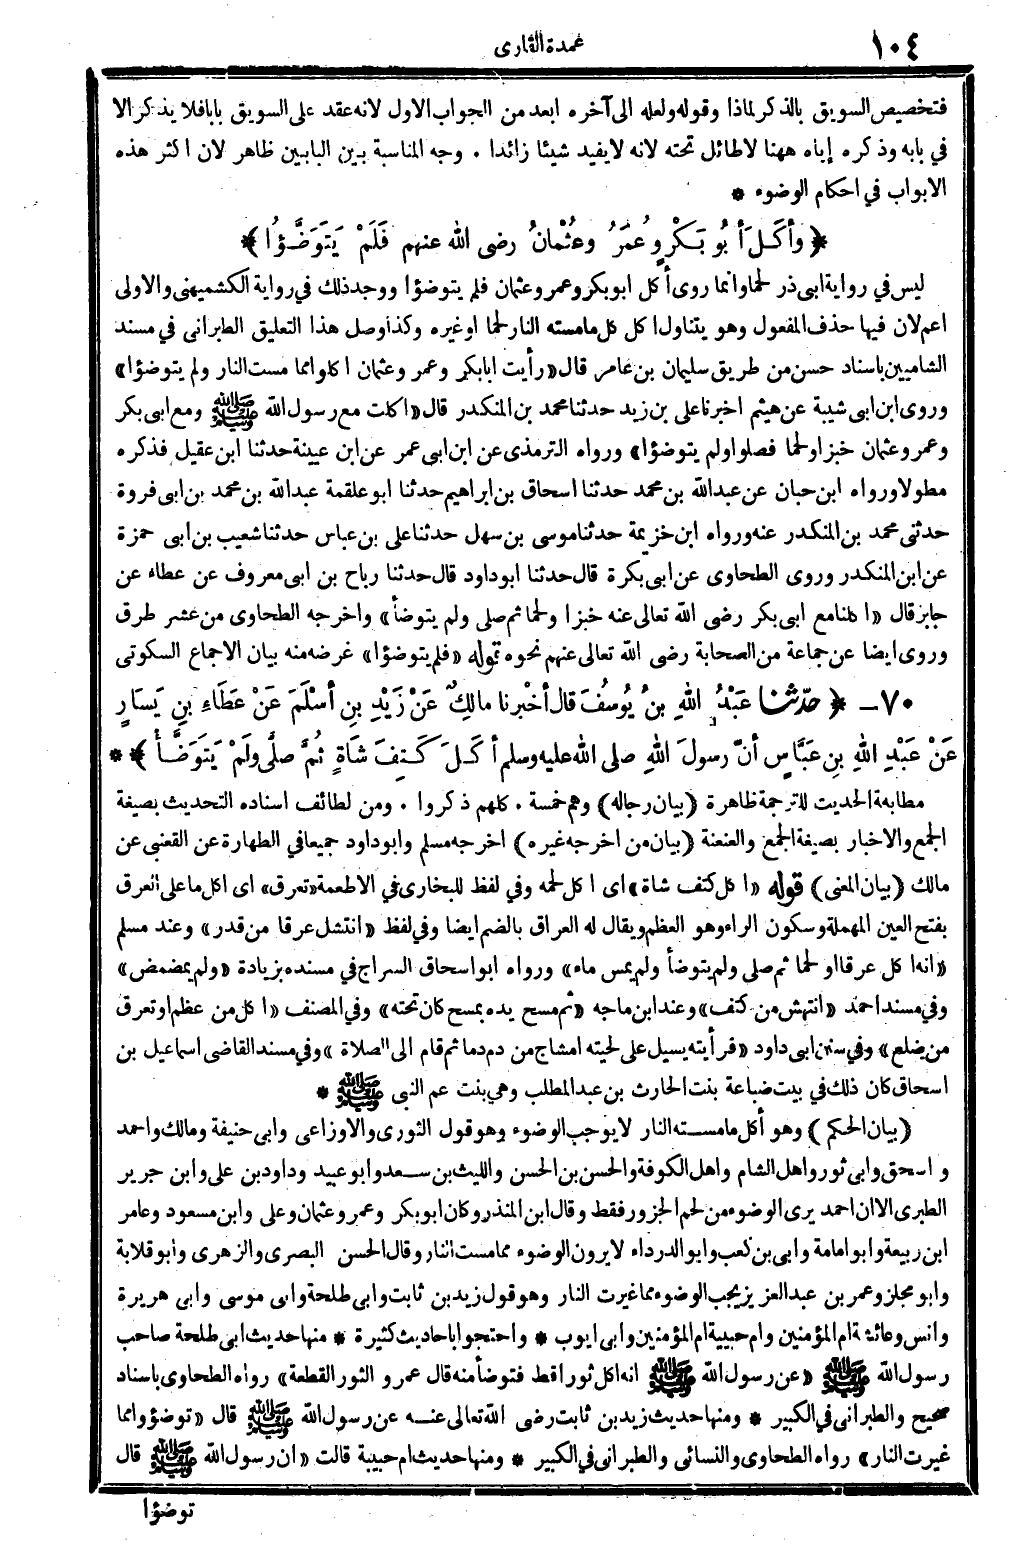 ١٠٤
عمدة القارى
فتخصيص السويق بالذكر لماذا وقوله ولعله الى آخره ابعد من الجواب الاول لانه عقد على السويق بابا فلا يذكر الا
في بابه وذكره إياه ههنا لاطائل تحته لانه لا يفيد شيئا زائدا . وجه المناسبة بين البابين ظاهر لان اكثر هذه
الابواب في احكام الوضوء *
﴿ وأكَلَ أبُو بَكْرٍ وعُمَرُ وعُثْمانُ رضى الله عنهم فَلَمْ يَتَوَضَّؤُا ﴾
ليس في رواية ابى ذر لحما وانما روى أكل ابو بكر وعمر وعثمان فلم يتوضؤا ووجد ذلك في رواية الكشميهنى والاولى
اعم لان فيها حذف المفعول وهو يتناول اكل كل ما مسته النار لحما او غيره وكذا وصل هذا التعليق الطبرانى في مسند
الشاميين باسناد حسن من طريق سليمان بن عامر قال «رأيت ابابكر وعمر وعثمان اكلوا مما مست النار ولم يتوضؤا»
وروى ابن ابى شيبة عن هيثم اخبرنا على بن زيد حدثنا محمد بن المنكدر قال «اكلت مع رسول الله ﷺ ومع ابى بكر
وعمر وعثمان خبزا ولحما فصلوا ولم يتوضؤا» ورواه الترمذى عن ابن ابى عمر عن ابن عيينة حدثنا ابن عقيل فذكره
مطولا ورواه ابن حبان عن عبدالله بن محمد حدثنا اسحاق بن ابراهيم حدثنا ابو علقمة عبدالله بن محمد بن ابى فروة
حدثنى محمد بن المنكدر عنه ورواه ابن خزيمة حدثنا موسى بن سهل حدثنا على بن عباس حدثنا شعيب بن ابى حمزة
عن ابن المنكدر وروى الطحاوى عن ابى بكرة قال حدثنا ابو داود قال حدثنا رباح بن ابى معروف عن عطاء عن
جابر قال «اكلنا مع ابى بكر رضى الله تعالى عنه خبزا ولحما ثم صلى ولم يتوضأ» واخرجه الطحاوى من عشر طرق
وروى ايضا عن جماعة من الصحابة رضى الله تعالى عنهم نحوه قوله «فلم يتوضؤا» غرضه منه بيان الاجماع السكوتى
٧٠ - ﴿ حدّثنا عَبْدُ اللهِ بنُ يُوسُفَ قال أخْبرنا مالِكٌ عَنْ زَيْدِ بنِ أسْلَمَ عَنْ عَطَاءِ بنِ يَسَارٍ
عَنْ عَبْدِ اللهِ بنِ عبَّاسٍ أنّ رسولَ اللهِ صلى الله عليه وسلم أكَلَ كَتِفَ شاةٍ ثُمَّ صلَّى ولَمْ يَتَوَضَّأْ ﴾ *
مطابقة الحديث للترجمة ظاهرة (بيان رجاله) وهم خمسة . كلهم ذكروا . ومن لطائف اسناده التحديث بصيغة
الجمع والاخبار بصيغة الجمع والعنعنة (بيان من اخرجه غيره) اخرجه مسلم وابو داود جميعا في الطهارة عن القعنبى عن
مالك (بيان المعنى) قوله «اكل كتف شاة» اى اكل لحمه وفي لفظ للبخارى في الاطعمة «تعرق» اى اكل ما على العرق
بفتح العين المهملة وسكون الراء وهو العظم ويقال له العراق بالضم ايضا وفي لفظ «انتشل عرقا من قدر» وعند مسلم
«انه اكل عرقا او لحما ثم صلى ولم يتوضأ ولم يمس ماء» ورواه ابو اسحاق السراج في مسنده بزيادة «ولم يمضمض»
وفي مسند احمد «انتهش من كتف» وعند ابن ماجه «ثم مسح يده بمسح كان تحته» وفي المصنف «اكل من عظم او تعرق
من ضلع» وفي سنن ابى داود «فرأيته يسيل على لحيته امشاج من دم دما ثم قام الى الصلاة» وفي مسند القاضى اسماعيل بن
اسحاق كان ذلك في بيت ضباعة بنت الحارث بن عبد المطلب وهي بنت عم النبى ﷺ *
(بيان الحكم) وهو أكل ما مسته النار لا يوجب الوضوء وهو قول الثورى والاوزاعى وابى حنيفة ومالك واحمد
واسحق وابى ثور واهل الشام واهل الكوفة والحسن بن الحسن والليث بن سعد وابو عبيد وداود بن على وابن جرير
الطبرى الا ان احمد يرى الوضوء من لحم الجزور فقط وقال ابن المنذر وكان ابو بكر وعمر وعثمان وعلى وابن مسعود وعامر
ابن ربيعة وابو امامة وابى بن كعب وابو الدرداء لا يرون الوضوء مما مست النار وقال الحسن البصرى والزهرى وابو قلابة
وابو مجلز وعمر بن عبد العزيز يجب الوضوء مما غيرت النار وهو قول زيد بن ثابت وابى طلحة وابى موسى وابى هريرة
وانس وعائشة ام المؤمنين وام حبيبة ام المؤمنين وابى ايوب * واحتجوا باحاديث كثيرة * منها حديث ابى طلحة صاحب
رسول الله ﷺ «عن رسول الله ﷺ انه اكل ثور اقط فتوضأ منه قال عمرو الثور القطعة» رواه الطحاوى باسناد
صحيح والطبرانى في الكبير * ومنها حديث زيد بن ثابت رضى الله تعالى عنه عن رسول الله ﷺ قال «توضؤا مما
غيرت النار» رواه الطحاوى والنسائى والطبرانى في الكبير * ومنها حديث ام حبيبة قالت «ان رسول الله ﷺ قال
توضؤا